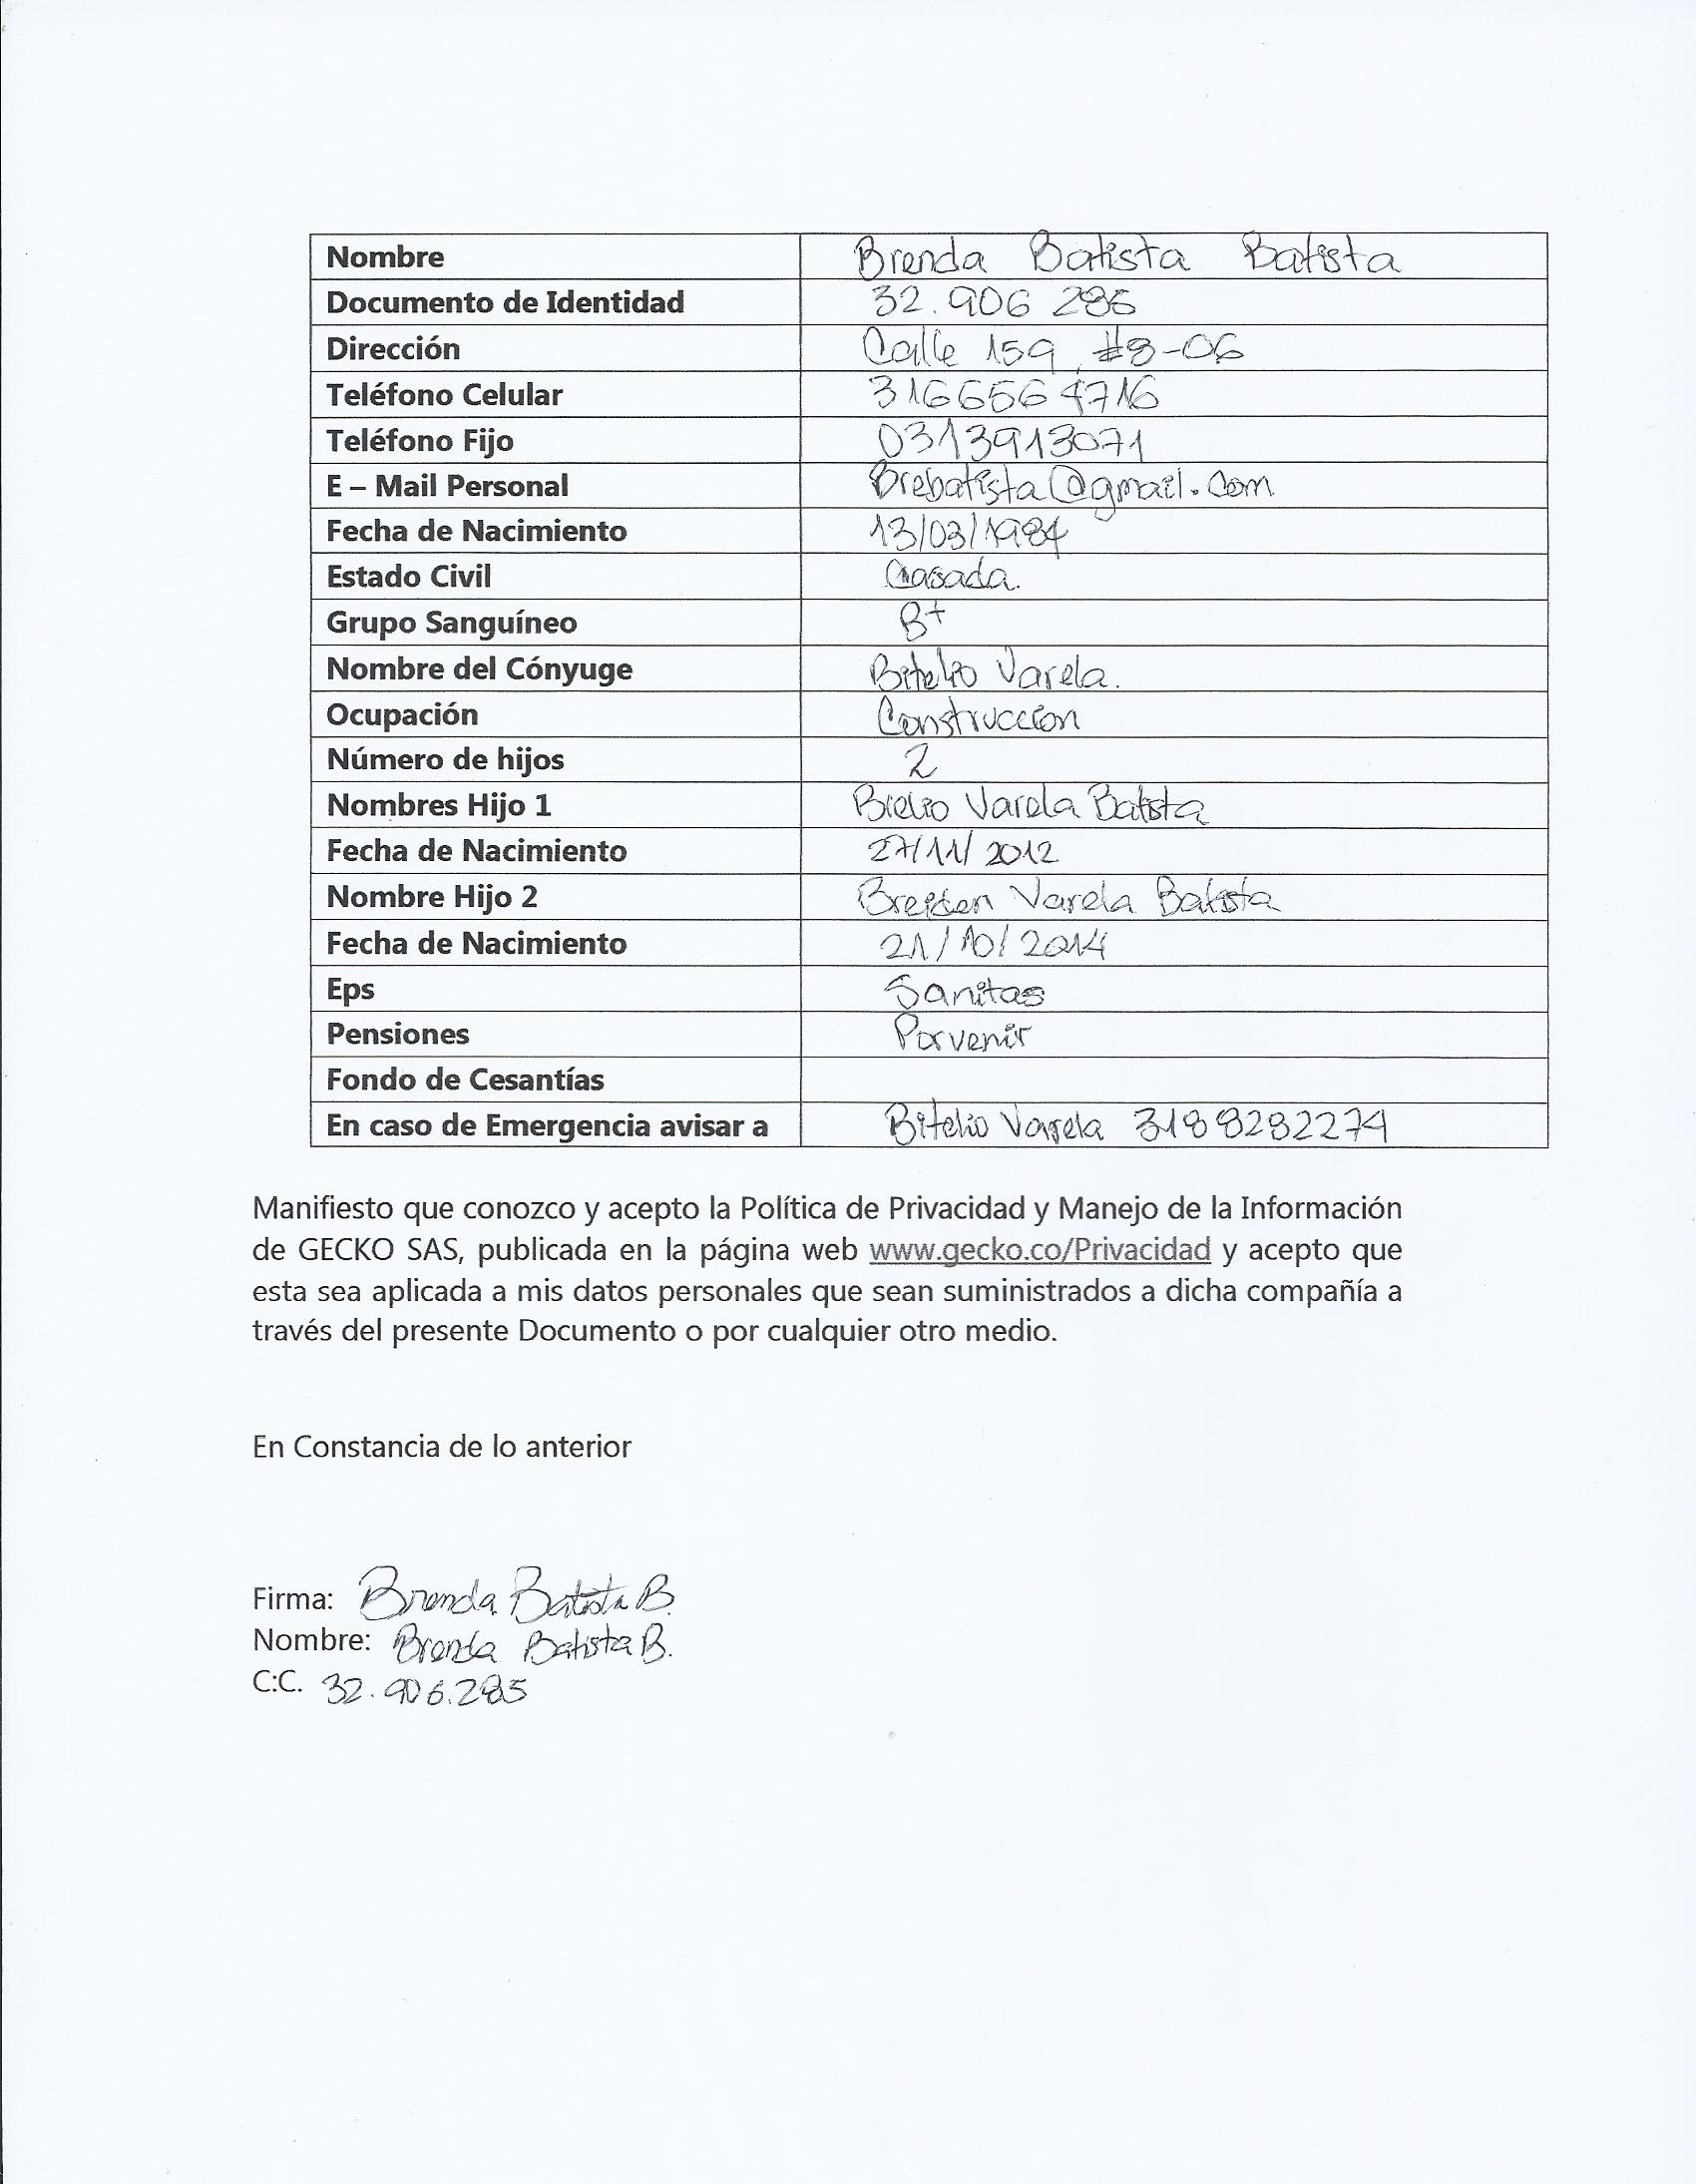 Nombre Brenda Batista Batista
Documento de Identidad 32.906 285
Dirección Calle 159 #8-06
Teléfono Celular 3166564716
Teléfono Fijo 0313913071
E – Mail Personal Brebatista@gmail.com
Fecha de Nacimiento 13/03/1984
Estado Civil Casada.
Grupo Sanguíneo B+
Nombre del Cónyuge Bitelio Varela.
Ocupación Construccion
Número de hijos 2
Nombres Hijo 1 Varela Batista
Fecha de Nacimiento 27/11/2012
Nombre Hijo 2 Varela Batista
Fecha de Nacimiento 21/10/2014
Eps Sanitas
Pensiones Porvenir
Fondo de Cesantías
En caso de Emergencia avisar a Bitelio Varela 3188282274
Manifiesto que conozco y acepto la Política de Privacidad y Manejo de la Información
de GECKO SAS, publicada en la página web www.gecko.co/Privacidad y acepto que
esta sea aplicada a mis datos personales que sean suministrados a dicha compañía a
través del presente Documento o por cualquier otro medio.
En Constancia de lo anterior
Firma: Brenda Batista B.
Nombre: Brenda Batista B.
C:C. 32.906.285